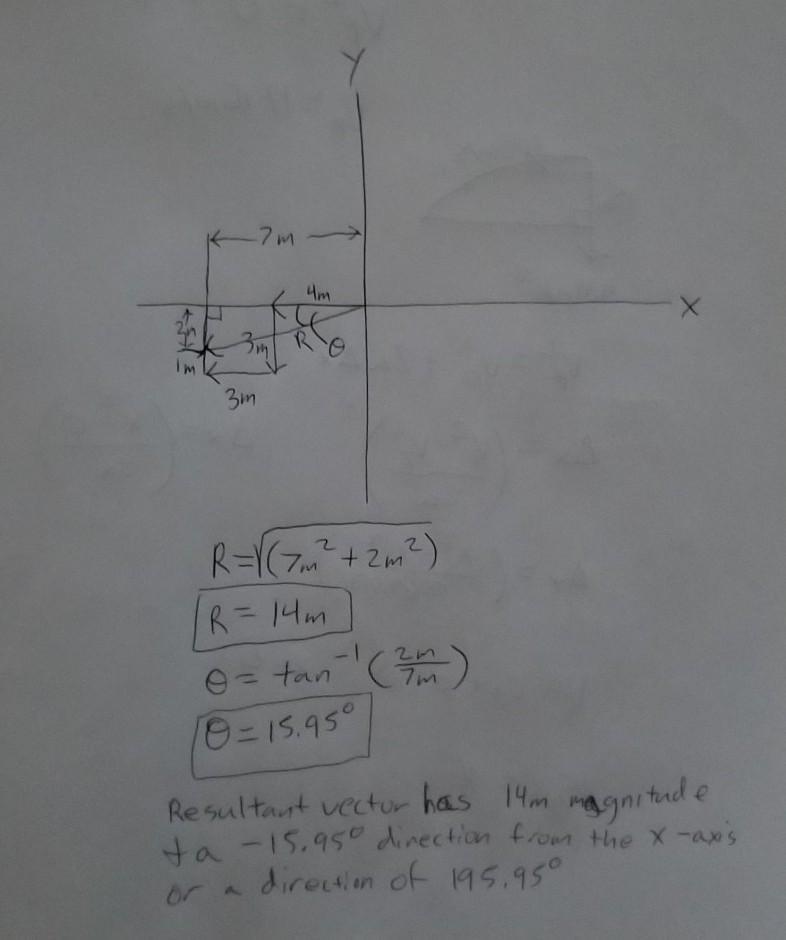 Y
7m
4m
X
2m
3m
R
θ
1m
3m
R=√(7m²+2m²)
R= 14m
θ= tan⁻¹(2m/7m)
θ=15.95°
Resultant vector has 14m magnitude
+ a -15.95° direction from the x-axis
or a direction of 195.95°